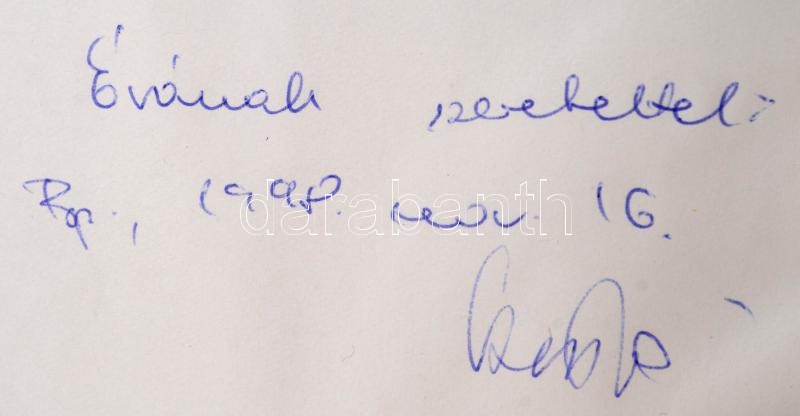 Évának szeretettel:
Bp., 1998. nov. 16.
darabanth